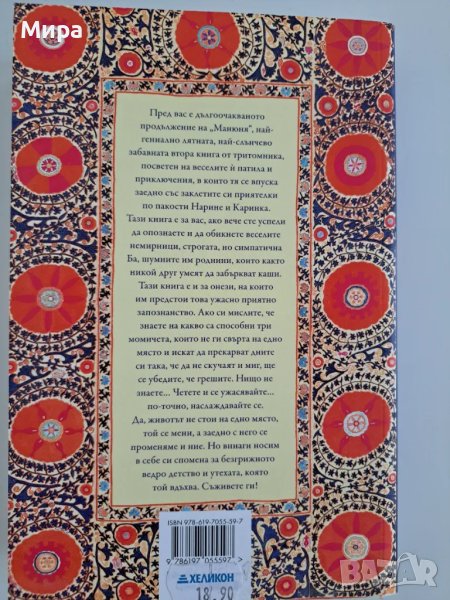 Мира
Пред вас е дългоочакваното
продължение на „Манюня“, най-
гениално лятната, най-слънчево
забавната втора книга от тритомника,
посветен на веселите ѝ патила и
приключения, в които тя се впуска
заедно със заклетите си приятелки
по пакости Нарине и Каринка.
Тази книга е за вас, ако вече сте успели
да опознаете и да обикнете веселите
немирници, строгата, но симпатична
Ба, шумните им роднини, които както
никой друг умеят да забъркват каши.
Тази книга е и за онези, на които
им предстои това ужасно приятно
запознанство. Ако си мислите, че
знаете на какво са способни три
момичета, които не ги свърта на едно
място и искат да прекарват дните
си така, че да не скучаят и миг, ще
се убедите, че грешите. Нищо не
знаете... Четете и се ужасявайте...
по-точно, наслаждавайте се.
Да, животът не стои на едно място,
той се мени, а заедно с него се
променяме и ние. Но винаги носим
в себе си спомена за безгрижното
ведро детство и утехата, която
той вдъхва. Съживете ги!
ISBN 978-619-7055-59-7
9 786197 055597 >
ХЕЛИКОН
18.90
bazar